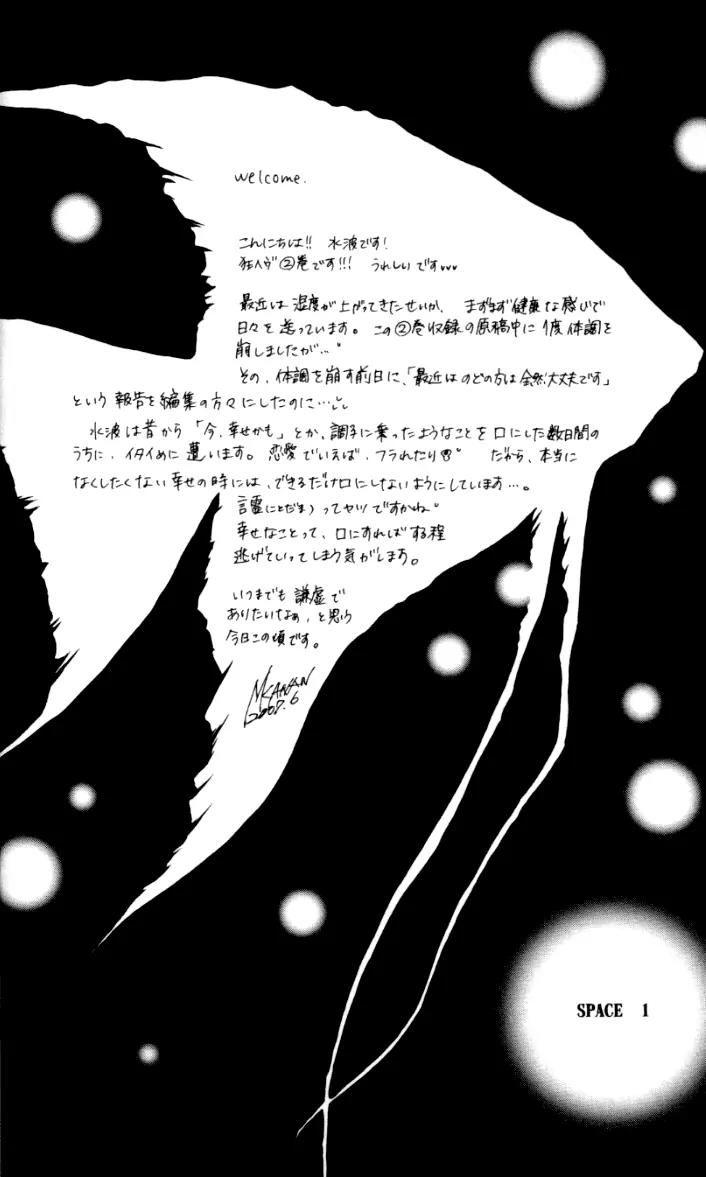 welcome.
こんにちは!! 水波です!
狂ヘヴ②巻です!!! うれしいです♥♥♥
最近は湿度が上がってきたせいか、まずまず健康な感じで
日々を送っています。この②巻収録の原稿中に1度体調を
崩しましたが…。
その、体調を崩す前日に、「最近はのどの方は全然大丈夫です」
という報告を編集の方々にしたのに…
水波は昔から「今、幸せかも」とか、調子に乗ったようなことを口にした数日間の
うちに、イタイめに遭います。恋愛でいえば、フラれたり だから、本当に
なくしたくない幸せの時には、できるだけ口にしないようにしています…。
言霊(ことだま)ってヤツですかね。
幸せなことって、口にすればする程
逃げていってしまう気がします。
いつまでも謙虚で
ありたいなぁ、と思う
今日この頃です。
M.KAZANE
SPACE 1